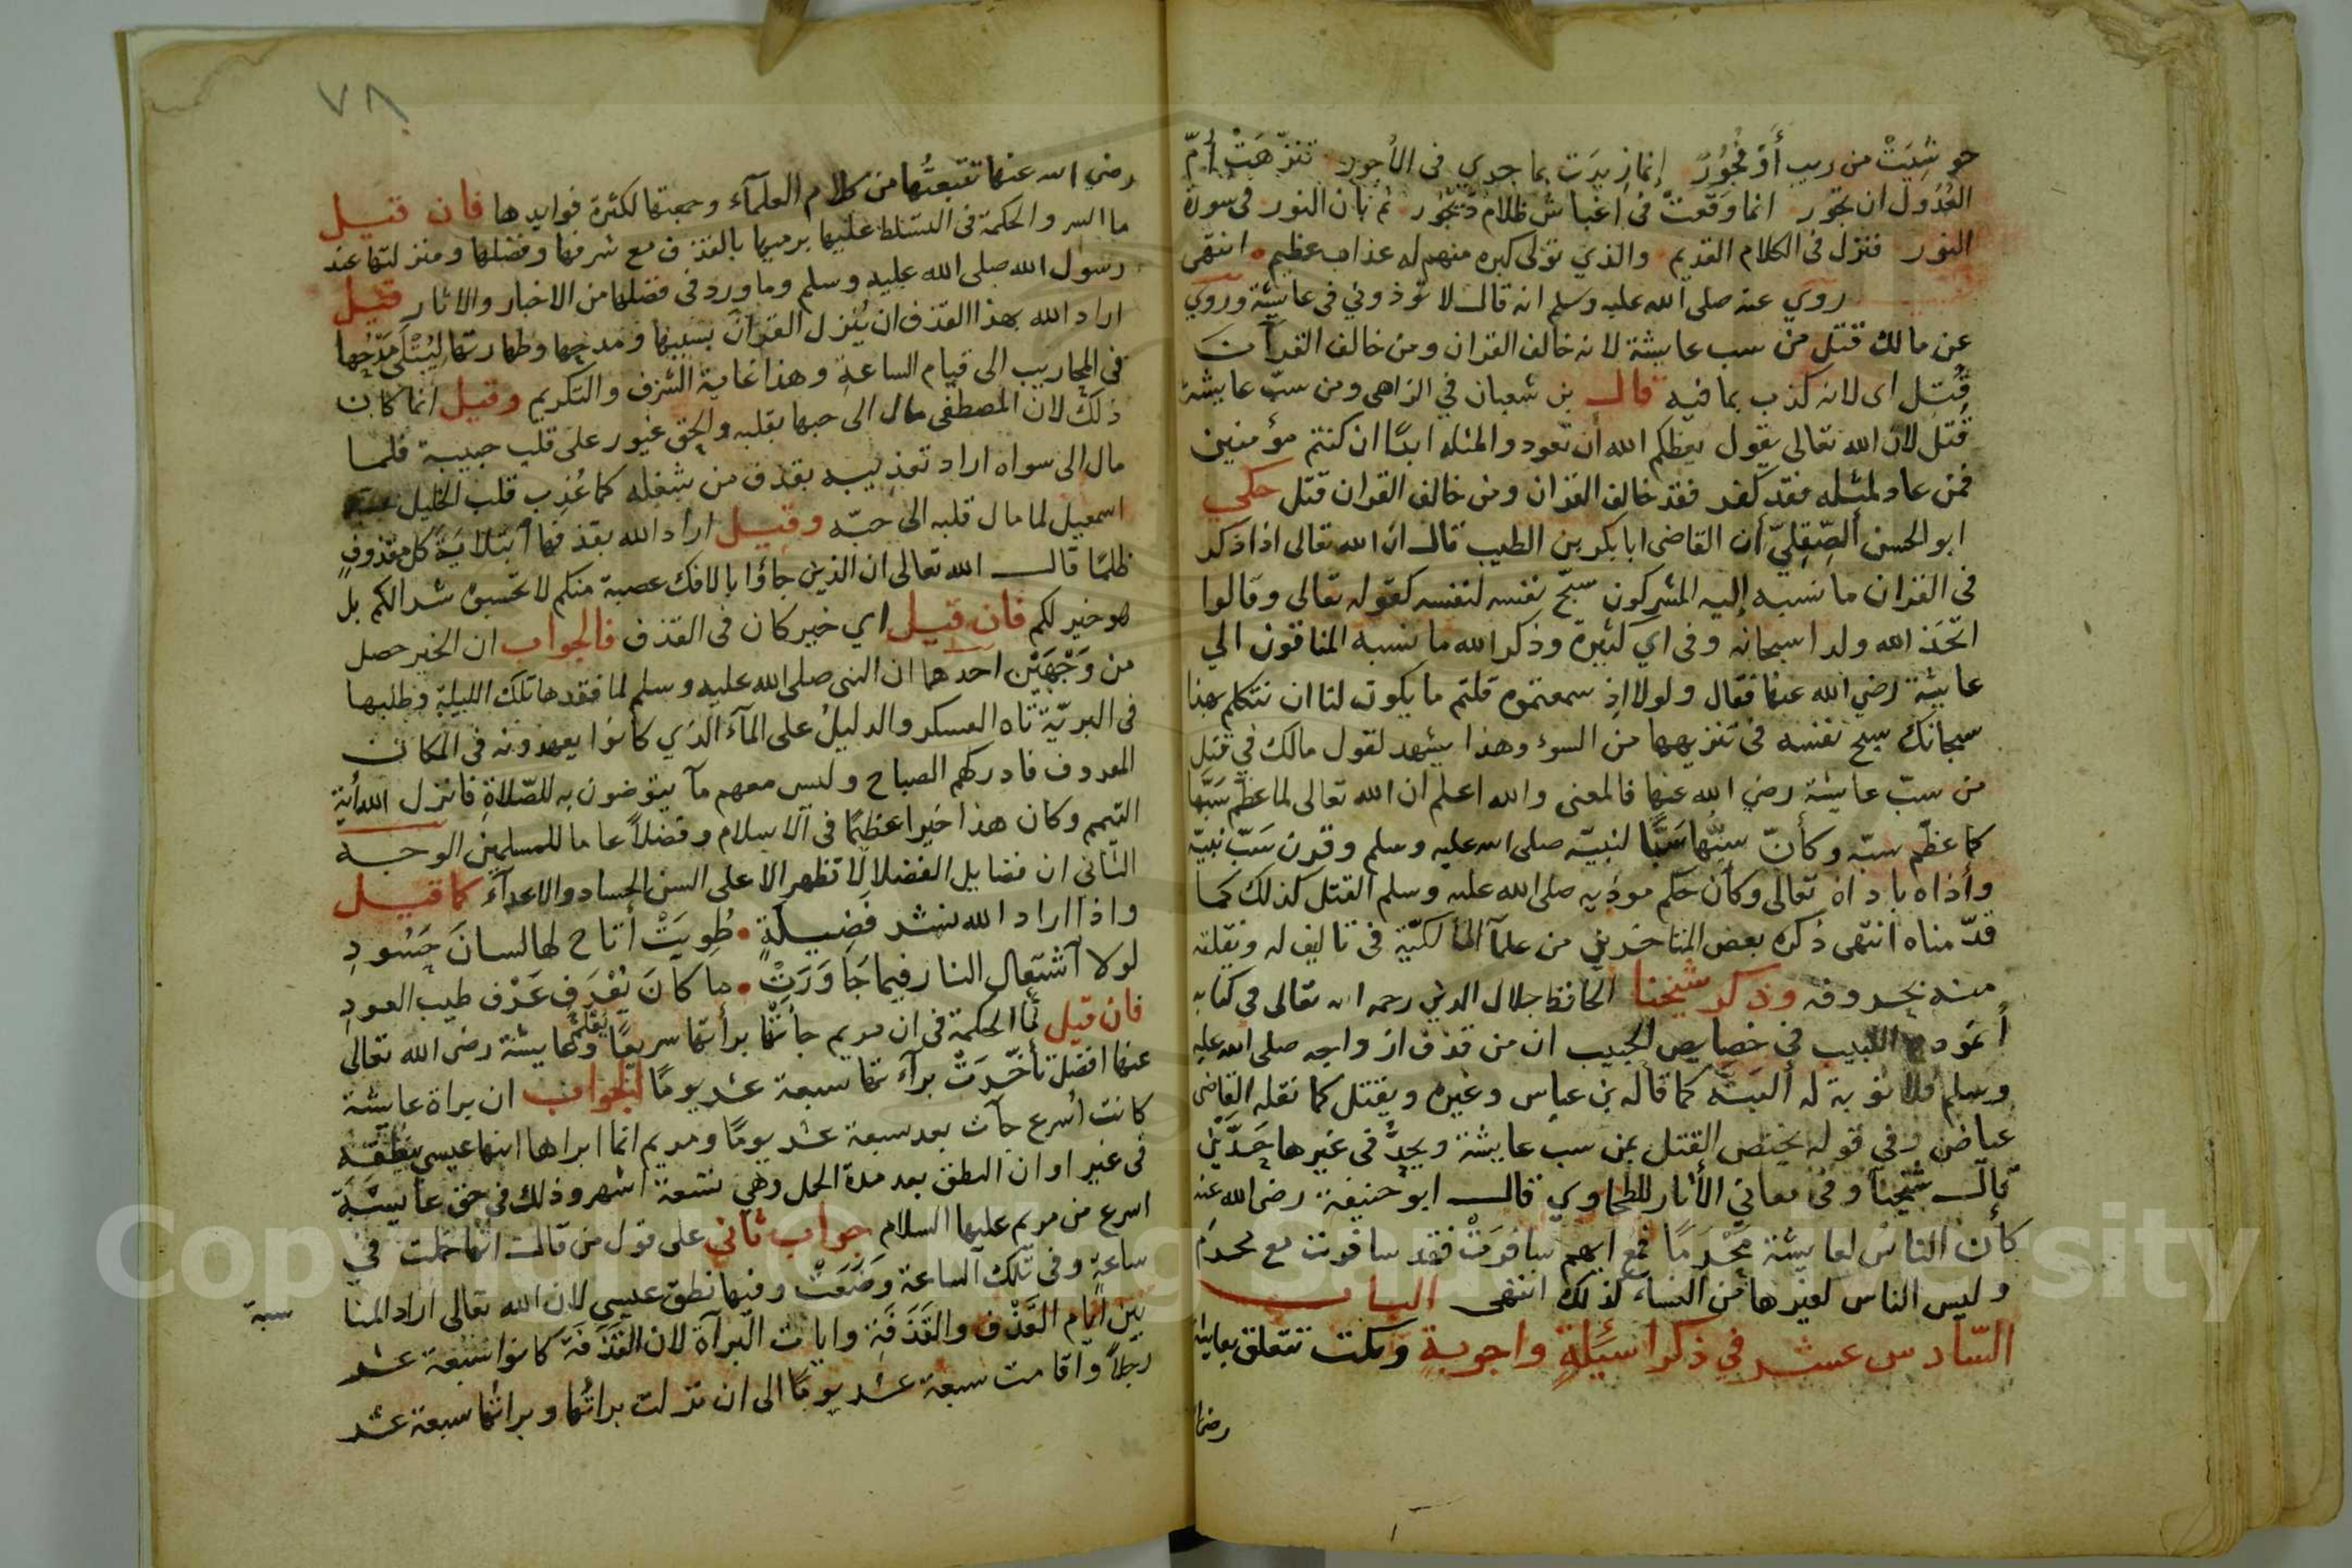 حوشيت من ريب أو فجور إنما زيدت بما جرى في الأجور تنزهت أم
العدول ان تجور انما وقعت في اغباش ظلام ديجور ثم بان النور في سورة
النور فنزل في الكلام القديم والذي تولى كبره منهم له عذاب عظيم انتهى
روي عنه صلى الله عليه وسلم انه قال لا توذوني في عايشة وروي
عن مالك قتل من سب عايشة لانه خالف القران ومن خالف القرآن
قتل اى لانه كذب بما فيه قال بن شعبان في الزاهى ومن سبّ عايشة
قتل لان الله تعالى يقول يعظكم الله أن تعودوا لمثله ابدًا ان كنتم مؤمنين
فمن عاد لمثله فقد كفر فقد خالف القران ومن خالف القران قتل حكي
ابو الحسن الصّقِلِيّ أن القاضى ابا بكر بن الطيب قال ان الله تعالى اذا ذكر
في القران ما نسبه إليه المشركون سبّح نفسه لنفسه كقوله تعالى وقالوا
اتّخذ الله ولدا سبحانه وفى اي كثيرة وذكر الله ما نسبه المنافقون الي
عايشة رضي الله عنها فقال ولولا اذ سمعتموه قلتم ما يكون لنا ان نتكلم بهذا
سبحانك سبح نفسه في تنزيهها من السوء وهذا يشهد لقول مالك في قتل
من سبّ عايشة رضي الله عنها فالمعنى والله اعلم ان الله تعالى لما عظّم سَبّها
كما عظّم سبّه وكأنّ سبّها سَبًّا لنبيّه صلى الله عليه وسلم وقرن سَبّ نبيّه
وأذاه باداه تعالى وكان حكم موذيه صلى الله عليه وسلم القتل كذلك كما
قدّمناه انتهى ذكره بعض المتاخرين من علمآ المالكيّة في تاليف له ونقلته
منه بحروفه وذكر شيخنا الحافظ جلال الدين رحمه الله تعالى في كتابه
أنموذج اللبيب في خصايص الحبيب ان من قذف ازواجه صلى الله عليه
وسلم فلا توبة له ألبتّه كما قاله بن عباس وغيره ويقتل كما نقله القاضى
عياض وفي قوله يختص القتل بمن سب عايشة ويحدُّ في غيرها حَدّين
قال شيخنا وفى معاني الأثار للطحاوي قال ابو حنيفة رضى الله عنه
كان الناس لعايشة مَحْرَمًا فمع ايهم سافرَتْ فقد سافرت مع محرم
وليس الناس لغيرها من النساء كذلك انتهى الباب
السّادس عشر في ذكر اسئلةٍ واجوبةٍ ونكت تتعلق بعايشة
رضى
٧٨
رضي الله عنها تتبعتُها من كلام العلمآء وجمعتها لكثرة فوايدها فان قيل
ما السر والحكمة في التسلط عليها برميها بالقذف مع شرفها وفضلها ومنزلتها عند
رسول الله صلى الله عليه وسلم وما ورد في فضلها من الاخبار والاثار قيل
اراد الله بهذا القذف ان يُنزل القران بسببها ومدحها وطهارتها ليُتْلَى مَدْحُها
في المحاريب الى قيام الساعةِ وهذا غاية الشرف والتكريم وقيل انما كان
ذلك لان المصطفى مال الى حبها بقلبه والحق غيور على قلب حبيبه فلما
مال الى سواه اراد تعذيبه بقذف من شغله كما عُذِب قلب الخليل
اسمعيل لما مال قلبه الى حبّه وقيل اراد الله بقذفها ابتلا كل مقذوفٍ
ظلمًا قال الله تعالى ان الذين جاؤا بالافك عصبة منكم لا تحسبوه شرا لكم بل
هو خير لكم فان قيل اي خير كان في القذف فالجواب ان الخير حصل
من وَجْهَيْن احدهما ان النبى صلى الله عليه وسلم لما فقدها تلك الليلة وطلبها
فى البريّة تاه العسكر والدليلُ على المآء الذي كانوا يعهدونه فى المكان
المعروف فادركهم الصباح وليس معهم مآ يتوضون به للصّلاةِ فانزل الله أية
التيمم وكان هذا خيرا عظيمًا فى الاسلام وفضلاً عاما للمسلمين الوجه
الثانى ان فضايل الفضلا لا تظهر الا على السن الحساد والاعدآء كما قيل
واذا اراد الله نشر فَضِيلَةٍ • طُوِيَتْ أتاح لها لسانَ حَسُودِ
لولا آشتعال النار فيما جَاوَرَتْ • ما كانَ يُعْرَف عَرْف طيب العودِ
فان قيل لما الحكمة فى ان مريم جاتها برأتها سريعًا وعايشة رضى الله تعالى
عنها افضل تأخّرَتْ برآءتها سبعة عشر يومًا الجواب ان براة عايشة
كانت أسرع جآت بعد سبعة عشر يومًا ومريم انما ابراها ابنها عيسي بنُطقه
في غير اوان النطق بعد مدة الحمل وهي تسعة اشهر وذلك في حق عايشة
اسرع من مريم عليها السلام جواب ثاني على قول من قال انها حملت في
ساعةٍ وفى تلك الساعة وَضَعَتْ وفيها نطق عيسي لان الله تعالى اراد المنا
سبة
بين أيام القَذْف والقَذَفَةِ وايات البرآة لان القَذَفَة كانوا سبعة عشر
رجلاً واقامت سبعة عشر يومًا الى ان نزلت براتُها وبراتُها سبعة عشر
Copyright © King Saud University